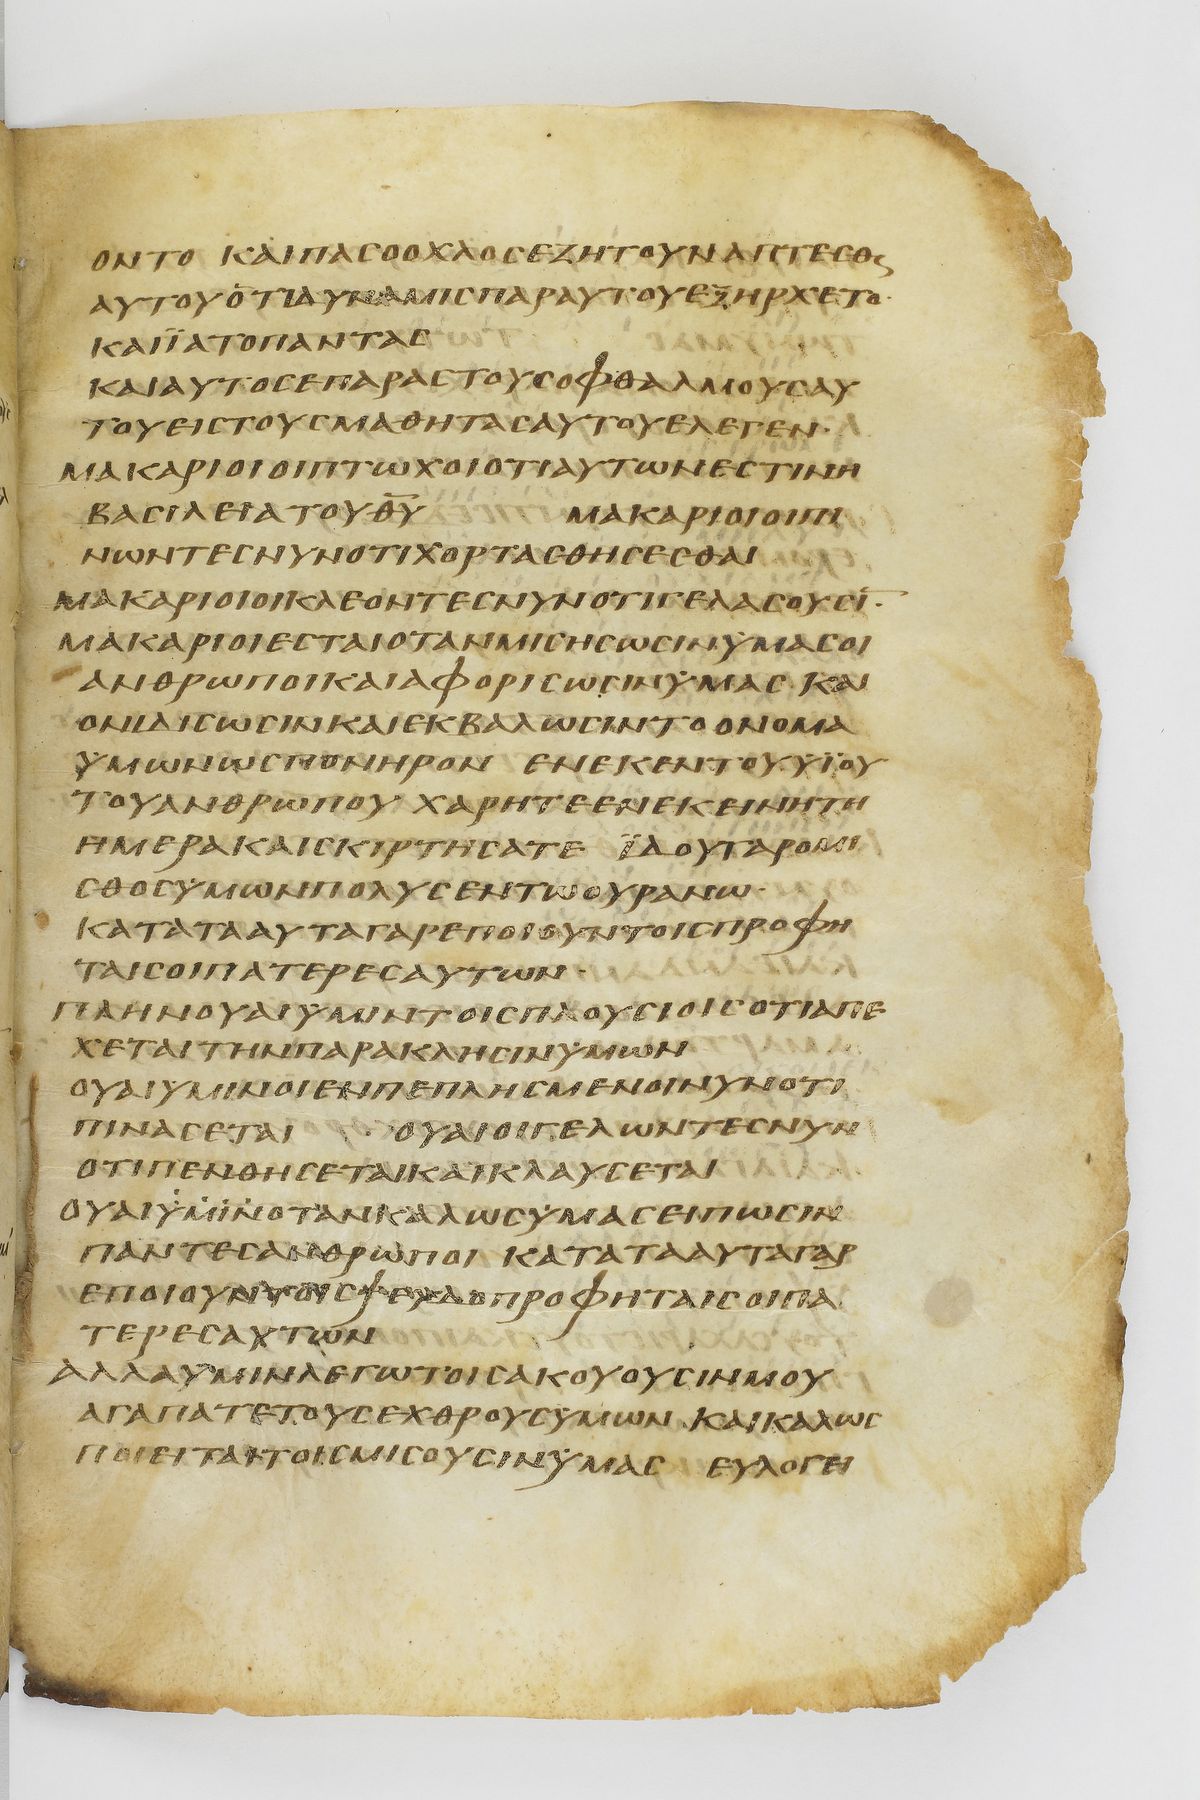 ΟΝΤΟ ΚΑΙΠΑCΟΟΧΛΟCΕΖΗΤΟΥΝΑΠΤΕCΘΕ
ΑΥΤΟΥΟΤΙΔΥΝΑΜΙCΠΑΡΑΥΤΟΥΕΞΗΡΧΕΤΟ·
ΚΑΙΪΑΤΟΠΑΝΤΑC
ΚΑΙΑΥΤΟCΕΠΑΡΑCΤΟΥCΟΦΘΑΛΜΟΥCΑΥ
ΤΟΥΕΙCΤΟΥCΜΑΘΗΤΑCΑΥΤΟΥΕΛΕΓΕΝ·
ΜΑΚΑΡΙΟΙΟΙΠΤΩΧΟΙΟΤΙΑΥΤΩΝΕCΤΙΝΗ
ΒΑCΙΛΕΙΑΤΟΥΘ̅Υ̅ ΜΑΚΑΡΙΟΙΟΙΠΙ
ΝΩΝΤΕCΝΥΝΟΤΙΧΟΡΤΑCΘΗCΕCΘΑΙ
ΜΑΚΑΡΙΟΙΟΙΚΛΕΟΝΤΕCΝΥΝΟΤΙΓΕΛΑCΟΥCΙ̅·
ΜΑΚΑΡΙΟΙΕCΤΑΙΟΤΑΝΜΙCΗCΩCΙΝΫΜΑCΟΙ
ΑΝΘΡΩΠΟΙΚΑΙΑΦΟΡΙCΩCΙΝΫΜΑC ΚΑΙ
ΟΝΙΔΙCΩCΙΝΚΑΙΕΚΒΑΛΩCΙΝΤΟΟΝΟΜΑ
ΫΜΩΝΩCΠΟΝΗΡΟΝ ΕΝΕΚΕΝΤΟΥΫΙΟΥ
ΤΟΥΑΝΘΡΩΠΟΥ ΧΑΡΗΤΕΕΝΕΚΕΙΝΗΤΗ
ΗΜΕΡΑΚΑΙCΚΙΡΤΗCΑΤΕ ΪΔΟΥΓΑΡΟΜΙ
CΘΟCΫΜΩΝΠΟΛΥCΕΝΤΩΟΥΡΑΝΩ·
ΚΑΤΑΤΑΑΥΤΑΓΑΡΕΠΟΙΟΥΝΤΟΙCΠΡΟΦΗ
ΤΑΙCΟΙΠΑΤΕΡΕCΑΥΤΩΝ·
ΠΛΗΝΟΥΑΙΫΜΙΝΤΟΙCΠΛΟΥCΙΟΙCΟΤΙΑΠΕ
ΧΕΤΑΙΤΗΝΠΑΡΑΚΛΗCΙΝΫΜΩΝ
ΟΥΑΙΥΜΙΝΟΙΕΝΠΕΠΛΗCΜΕΝΟΙΝΥΝΟΤΙ
ΠΙΝΑCΕΤΑΙ ΟΥΑΙΟΙΓΕΛΩΝΤΕCΝΥΝ
ΟΤΙΠΕΝΘΗCΕΤΑΙΚΑΙΚΛΑΥCΕΤΑΙ
ΟΥΑΙΫΜΙΝΟΤΑΝΚΑΛΩCΫΜΑCΕΙΠΩCΙΝ
ΠΑΝΤΕCΑΝΘΡΩΠΟΙ ΚΑΤΑΤΑΑΥΤΑΓΑΡ
ΕΠΟΙΟΥΝΤΟΙCΨΕΥΔΟΠΡΟΦΗΤΑΙCΟΙΠΑ
ΤΕΡΕCΑΥΤΩΝ
ΑΛΛΑΥΜΙΝΛΕΓΩΤΟΙCΑΚΟΥΟΥCΙΝΜΟΥ
ΑΓΑΠΑΤΕΤΟΥCΕΧΘΡΟΥCΫΜΩΝ ΚΑΙΚΑΛΩC
ΠΟΙΕΙΤΑΙΤΟΙCΜΙCΟΥCΙΝΫΜΑC ΕΥΛΟΓΕΙ